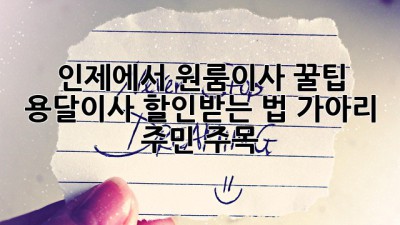 인제에서 원룸이사 꿀팁
용달이사 할인받는 법 가아리
주민 주목